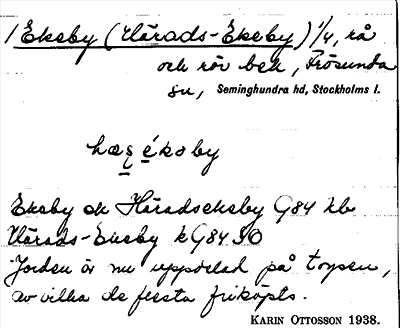 1 Ekeby (Härads-Ekeby) 1/4, rå
och rör bek, Frösunda
sn, Seminghundra hd, Stockholms l.
hæṣ ékəby
Ekeby ek Häradsekeby G84 hb
Härads-Ekeby kG84 SO
Jorden är nu uppdelad på torpen,
av vilka de flesta friköpts.
KARIN OTTOSSON 1938.